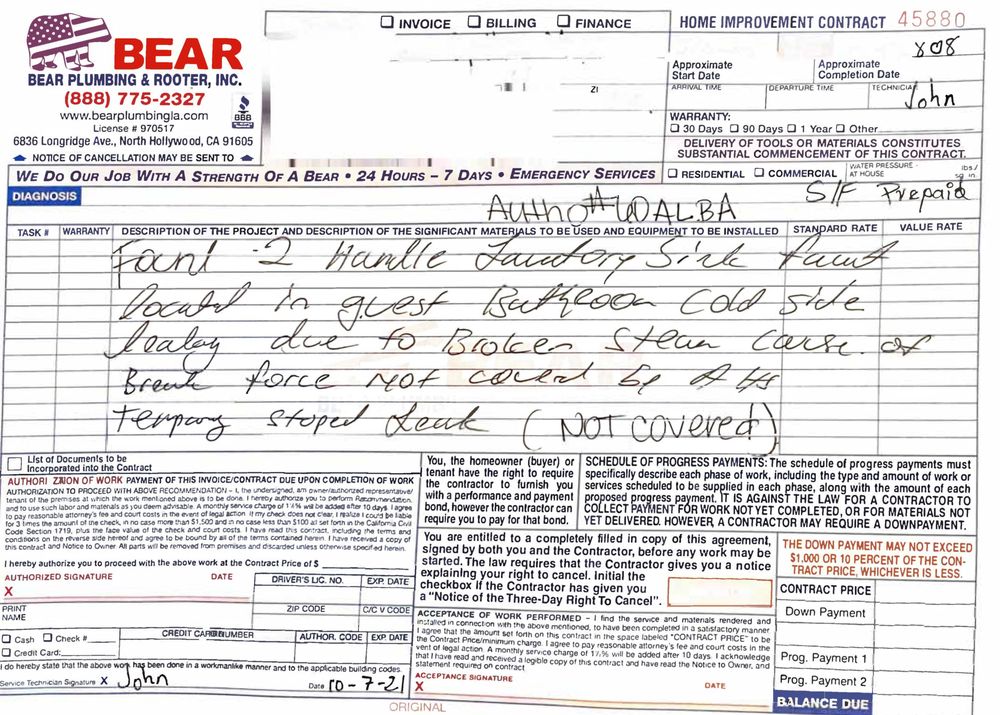 INVOICE BILLING FINANCE
HOME IMPROVEMENT CONTRACT 45880
BEAR
BEAR PLUMBING & ROOTER, INC.
(888) 775-2327
www.bearplumbingla.com
License # 970517
BBB
6836 Longridge Ave., North Hollywood, CA 91605
NOTICE OF CANCELLATION MAY BE SENT TO
808
Approximate Start Date
Approximate Completion Date
ARRIVAL TIME DEPARTURE TIME TECHNICIAN
John
ZI
WARRANTY:
30 Days 90 Days 1 Year Other
DELIVERY OF TOOLS OR MATERIALS CONSTITUTES
SUBSTANTIAL COMMENCEMENT OF THIS CONTRACT.
WE DO OUR JOB WITH A STRENGTH OF A BEAR • 24 HOURS – 7 DAYS • EMERGENCY SERVICES
RESIDENTIAL COMMERCIAL WATER PRESSURE AT HOUSE lbs/ sq in
DIAGNOSIS
Autho# WALBA
S/F Prepaid
TASK # WARRANTY DESCRIPTION OF THE PROJECT AND DESCRIPTION OF THE SIGNIFICANT MATERIALS TO BE USED AND EQUIPMENT TO BE INSTALLED STANDARD RATE VALUE RATE
Found 2 Handle Lavatory Sink
located in guest Bathroom cold side
leaking due to Broken Steam cause of
force not covered by AHS
stoped Leak (NOT covered)
List of Documents to be
Incorporated into the Contract
AUTHORI ZAION OF WORK PAYMENT OF THIS INVOICE/CONTRACT DUE UPON COMPLETION OF WORK
AUTHORIZATION TO PROCEED WITH ABOVE RECOMMENDATION – I, the undersigned, am owner/authorized representative/
tenant of the premises at which the work mentioned above is to be done. I hereby authorize you to perform Recommendation,
and to use such labor and materials as you deem advisable. A monthly service charge of 1½% will be added after 10 days. I agree
to pay reasonable attorney's fee and court costs in the event of legal action. If my check does not clear, I realize I could be liable
for 3 times the amount of the check, in no case more than $1,500 and in no case less than $100 all set forth in the California Civil
Code Section 1719, plus the face value of the check and court costs. I have read this contract, including the terms and
conditions on the reverse side hereof and agree to be bound by all of the terms contained herein. I have received a copy of
this contract and Notice to Owner. All parts will be removed from premises and discarded unless otherwise specified herein.
I hereby authorize you to proceed with the above work at the Contract Price of $
AUTHORIZED SIGNATURE DATE
X
DRIVER'S LIC. NO. EXP. DATE
PRINT NAME
ZIP CODE C/C V CODE
Cash Check #
CREDIT CARD NUMBER AUTHOR. CODE EXP. DATE
Credit Card:
I do hereby state that the above work has been done in a workmanlike manner and to the applicable building codes.
Service Technician Signature X John Date 10-7-21
You, the homeowner (buyer) or
tenant have the right to require
the contractor to furnish you
with a performance and payment
bond, however the contractor can
require you to pay for that bond.
SCHEDULE OF PROGRESS PAYMENTS: The schedule of progress payments must
specifically describe each phase of work, including the type and amount of work or
services scheduled to be supplied in each phase, along with the amount of each
proposed progress payment. IT IS AGAINST THE LAW FOR A CONTRACTOR TO
COLLECT PAYMENT FOR WORK NOT YET COMPLETED, OR FOR MATERIALS NOT
YET DELIVERED. HOWEVER, A CONTRACTOR MAY REQUIRE A DOWNPAYMENT.
You are entitled to a completely filled in copy of this agreement,
signed by both you and the Contractor, before any work may be
started. The law requires that the Contractor gives you a notice
explaining your right to cancel. Initial the
checkbox if the Contractor has given you
a "Notice of the Three-Day Right To Cancel".
THE DOWN PAYMENT MAY NOT EXCEED
$1,000 OR 10 PERCENT OF THE CON-
TRACT PRICE, WHICHEVER IS LESS.
ACCEPTANCE OF WORK PERFORMED – I find the service and materials rendered and
installed in connection with the above mentioned, to have been completed in a satisfactory manner
I agree that the amount set forth on this contract in the space labeled "CONTRACT PRICE" to be
the Contract Price/minimum charge. I agree to pay reasonable attorney's fee and court costs in the
vent of legal action. A monthly service charge of 1½% will be added after 10 days. I acknowledge
that I have read and received a legible copy of this contract and have read the Notice to Owner, and
statement required on contract.
ACCEPTANCE SIGNATURE
X DATE
CONTRACT PRICE
Down Payment
Prog. Payment 1
Prog. Payment 2
BALANCE DUE
ORIGINAL